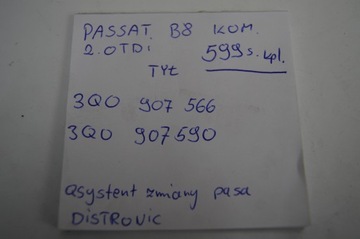 PASSAT B8 KOM.
2.0TDi 599s. kpl.
TYŁ
3Q0 907 566
3Q0 907 590
asystent zmiany pasa
DISTROVIC